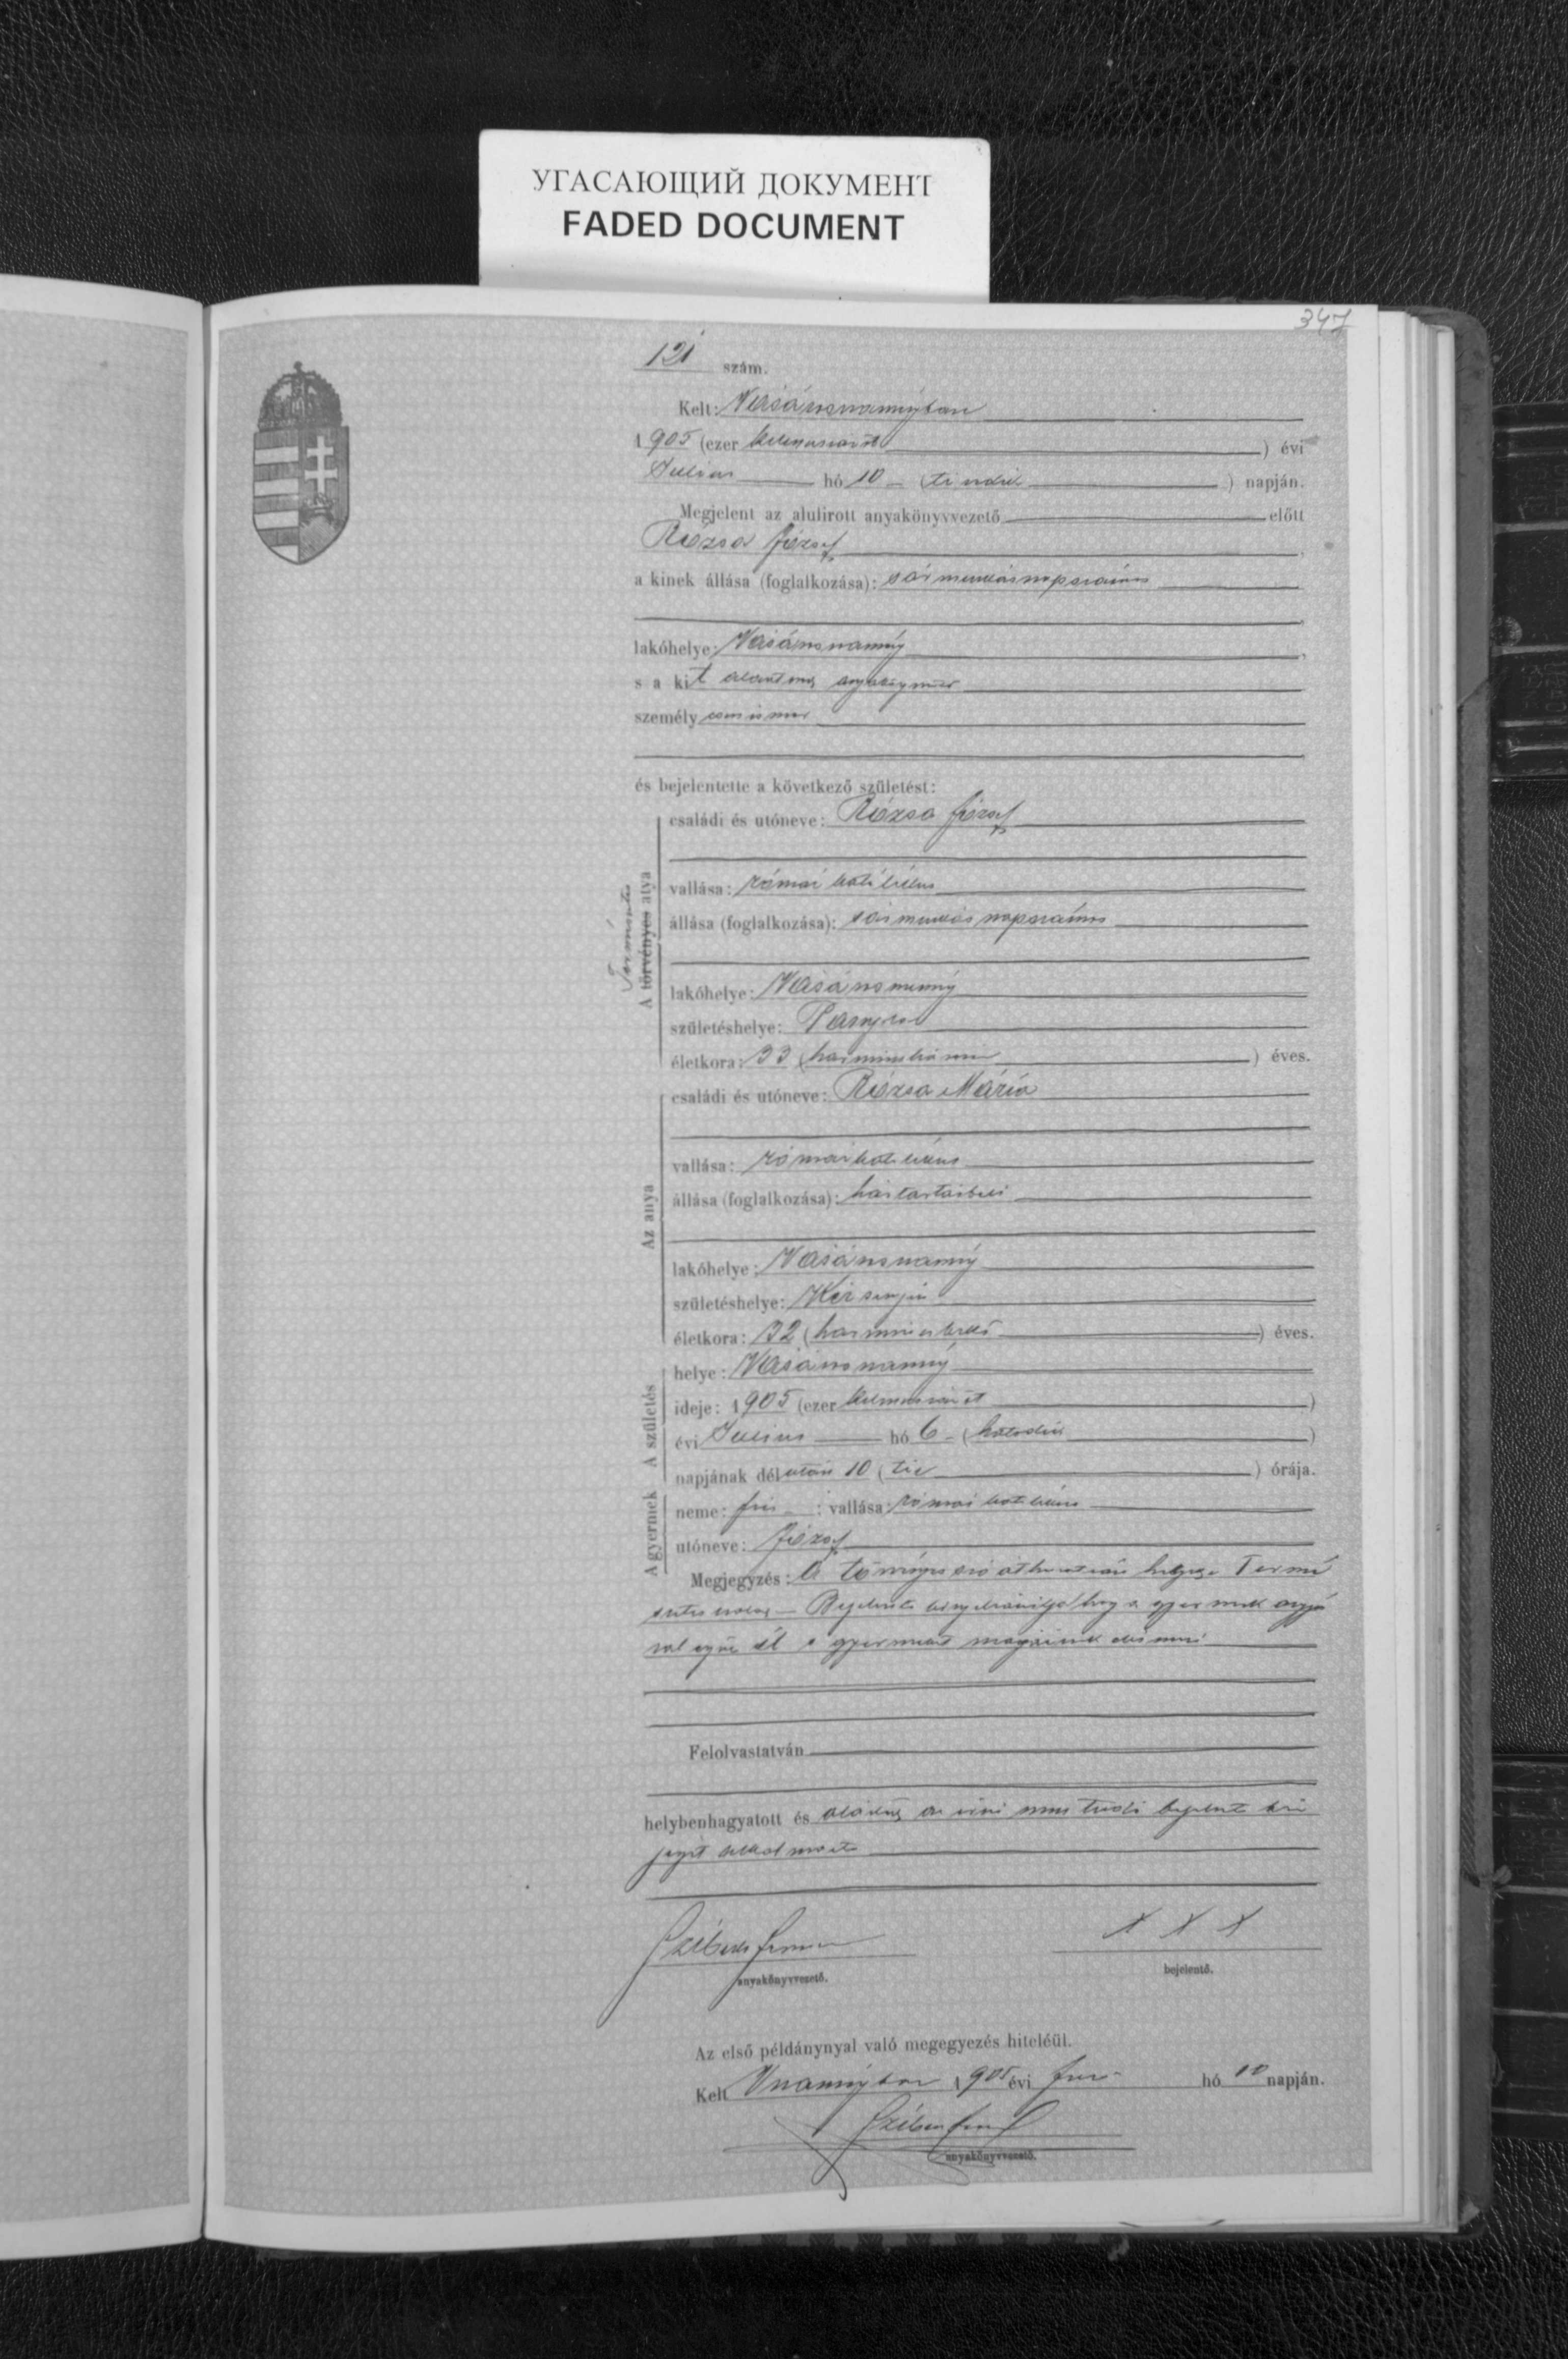 УГАСАЮЩИЙ ДОКУМЕНТ
FADED DOCUMENT
347
121 szám.
Kelt: Vásárosnaményban
1905 (ezer kilencszázöt) évi
Julius hó 10 (tizedik) napján.
Megjelent az alulirott anyakönyvvezető előtt
Rózsa József
a kinek állása (foglalkozása): sármunkás napszámos
lakóhelye: Vásárosnamény
s a kit
személy
és bejelentette a következő születést:
Természetes
A törvényes atya
családi és utóneve: Rózsa József
vallása: római katholikus
állása (foglalkozása): sármunkás napszámos
lakóhelye: Vásárosnamény
születéshelye: Panyola
életkora: 33 (harminchárom) éves.
Az anya
családi és utóneve: Rózsa Mária
vallása: római katholikus
állása (foglalkozása): háztartásbeli
lakóhelye: Vásárosnamény
születéshelye:
életkora: 32 (harminczkettő) éves.
A születés
helye: Vásárosnamény
ideje: 1905 (ezer kilencszázöt)
évi Julius hó 6 (hatodik)
napjának délután 10 (tíz) órája.
A gyermek
neme: fiú; vallása: római katholikus
utóneve: József
Megjegyzés: A törvényes szó áthúzatván helyes: Termé
szetes szóval — Bejelentő kinyilvánitja hogy a gyermek anyjá
val együtt él s a gyermeket magáénak elismeri
Felolvastatván
helybenhagyatott és aláírás az írni nem tudó bejelentő kéz
jegyét alkalmazta
anyakönyvvezető.
X X X
bejelentő.
Az első példánynyal való megegyezés hiteléül.
Kelt Vnaményban 1905 évi hó 10 napján.
anyakönyvvezető.